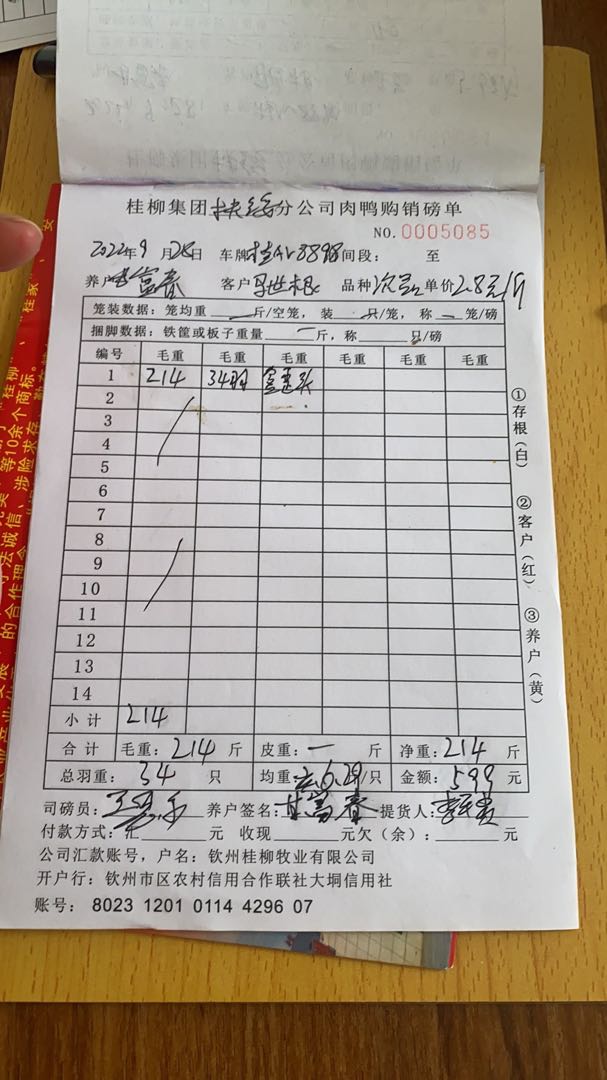 桂柳集团扶绥分公司肉鸭购销磅单
NO.0005085
2022年9月28日 车牌 时间段： 至
养户 富春 客户 品种 次品 单价2.8元/斤
笼装数据：笼均重 — 斤/空笼，装 — 只/笼，称 — 笼/磅
捆脚数据：铁筐或板子重量 — 斤，称____只/磅
编号 毛重 毛重 毛重 毛重 毛重 毛重
1 214 34羽
2
3
4
5
6
7
8
9
10
11
12
13
14
小计 214
合计 毛重：214斤 皮重：— 斤 净重：214斤
总羽重：34 只 均重：6.29/只 金额：599元
司磅员： 养户签名：甘富春 提货人：
付款方式：汇____元 收现____元欠（余）：____元
公司汇款账号，户名：钦州桂柳牧业有限公司
开户行：钦州市区农村信用合作联社大垌信用社
账号：8023 1201 0114 4296 07
①存根（白） ②客户（红） ③养户（黄）
等10余个商标。
守法诚信、涉险求存
的合作理念